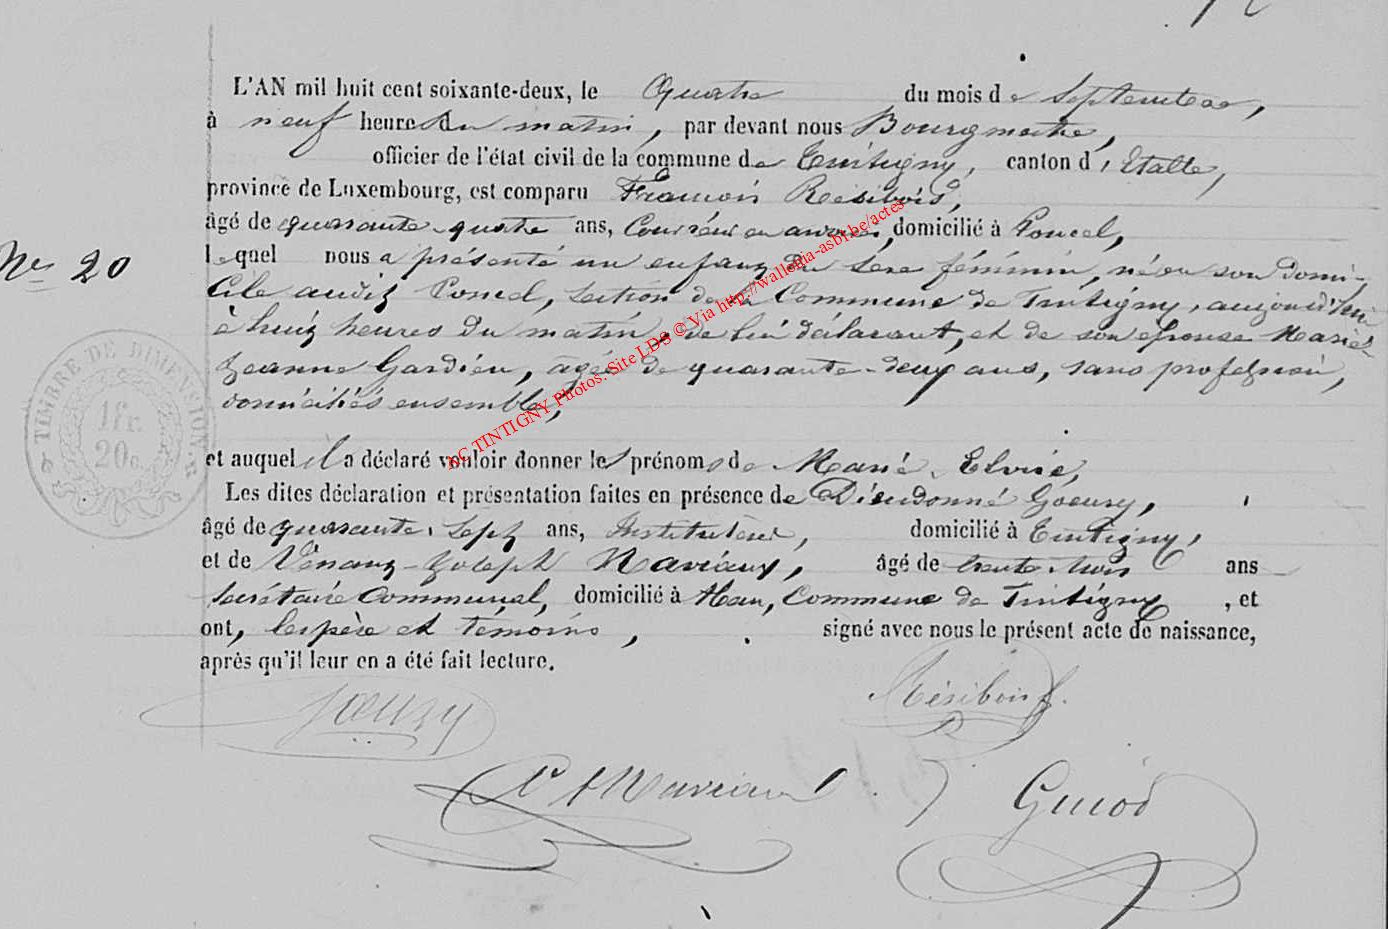 L'AN mil huit cent soixante-deux, le Quatre du mois de Septembre,
à neuf heures du matin, par devant nous Bourgmestre,
officier de l'état civil de la commune de Tintigny, canton d'Etalle,
province de Luxembourg, est comparu François Résibois,
âgé de quarante-quatre ans, domicilié à Poncel,
lequel nous a présenté un enfant du sexe féminin, né en son domi-
cile audit Poncel, section de la Commune de Tintigny, aujourd'hui
à huit heures du matin, de lui déclarant, et de son épouse Marie-
Jeanne Gardien, âgée de quarante-deux ans, sans profession,
domiciliés ensemble,
et auquel il a déclaré vouloir donner les prénoms de Marie-Elvire,
Les dites déclaration et présentation faites en présence de Dieudonné Goeury,
âgé de quarante-sept ans, Instituteur, domicilié à Tintigny,
et de Vénant-Joseph Naviaux, âgé de trente-trois ans
Secrétaire Communal, domicilié à Han, Commune de Tintigny, et
ont, les père et témoins, signé avec nous le présent acte de naissance,
après qu'il leur en a été fait lecture.
No 20
TIMBRE DE DIMENSION.
1fr.
20c.
AC TINTIGNY Photos: Site LDS © Via http://wallonia-asbl.be/actes
Goeury
Résibois f.
Naviaux